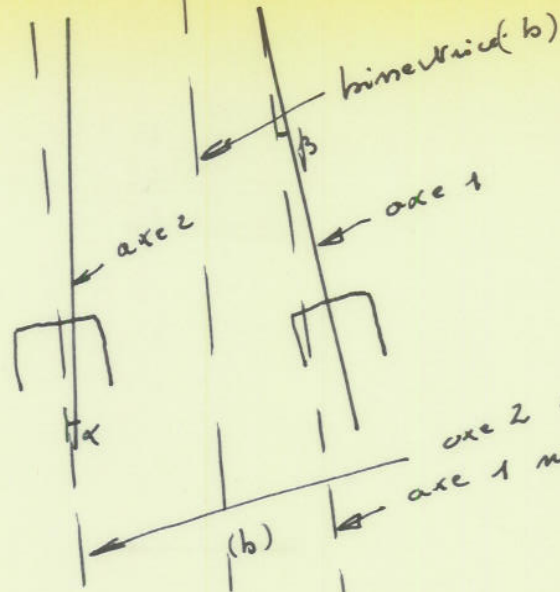 bissectrice (b)
β
axe 2
axe 1
α
axe 2
axe 1
(b)